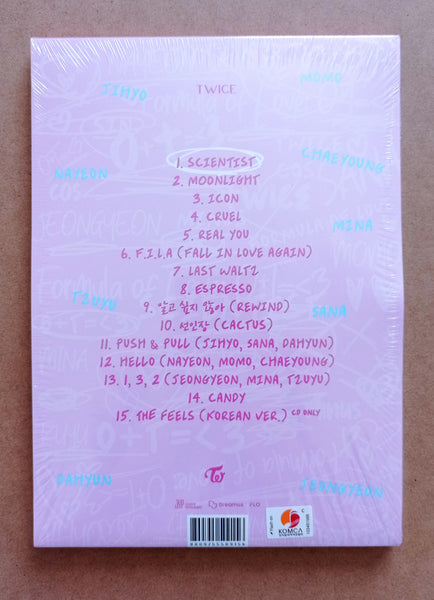 JIHYO
MOMO
TWICE
CHAEYOUNG
NAYEON
MINA
TZUYU
SANA
1. SCIENTIST
2. MOONLIGHT
3. ICON
4. CRUEL
5. REAL YOU
6. F.I.L.A (FALL IN LOVE AGAIN)
7. LAST WALTZ
8. ESPRESSO
9. 알고 싶지 않아 (REWIND)
10. 선인장 (CACTUS)
11. PUSH & PULL (JIHYO, SANA, DAHYUN)
12. HELLO (NAYEON, MOMO, CHAEYOUNG)
13. 1, 3, 2 (JEONGYEON, MINA, TZUYU)
14. CANDY
15. THE FEELS (KOREAN VER.) CD ONLY
DAHYUN
JEONGYEON
Dreamus FLO
KOMCA